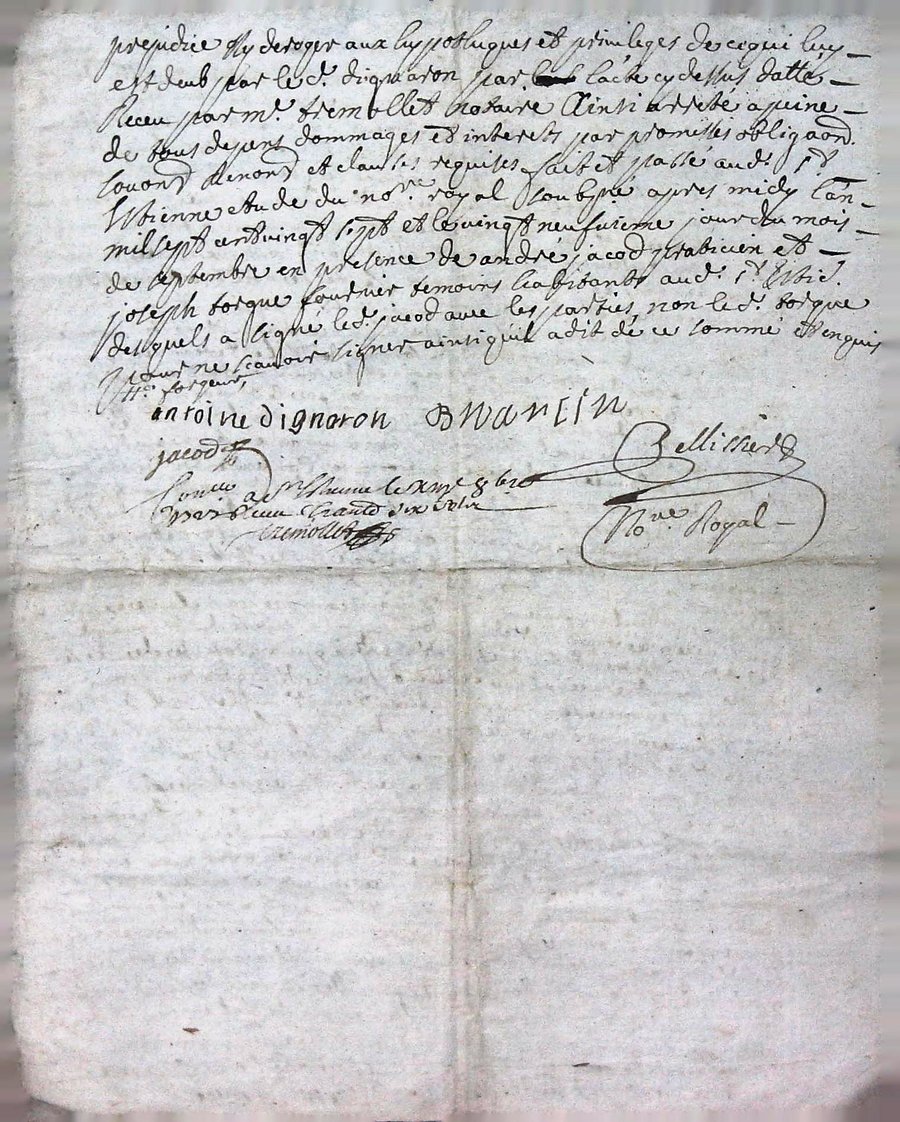 prejudice Ny deroger aux hypothegues et privileges de ce qui luy
est deub par led. dignaron par lacte cy dessus datté
Receu par me. tremollet notaire Ainsi arresté a peine
de tous despens dommages et interests par promesses obligaons.
renons et clauses requises fait et passé aud. st.
Estienne etude du nore royal soubsné apres midy l'an
mil sept cent vingt sept et le vingt neufvieme jour du mois
de septembre en presence de andré jacod praticien et
joseph torgue temoins habitants aud. st Esti.
desquels a signé led. jacod avec les parties, non led. torgue
pour ne scavoir signer ainsi quil a dit de ce sommé et enquis
antoine dignaron
jacod
Pellissier
a St Estienne le 8bre
tremollet
Nore Royal